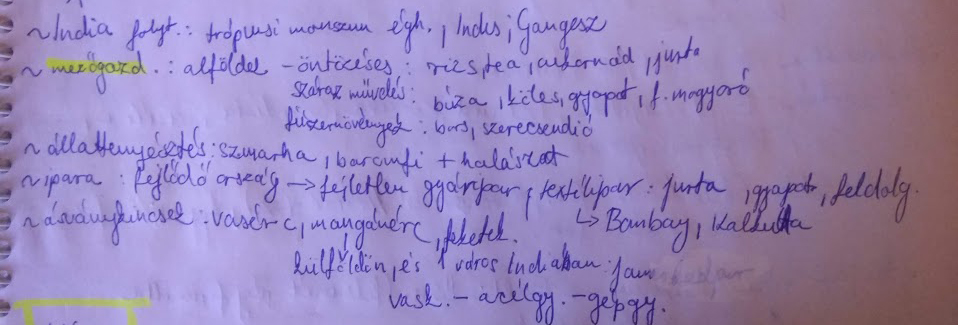 ~India folyt.: trópusi monszun égh., Indus; Gangesz
~ mezőgazd.: alföldek - öntözéses: rizs, tea, cukornád, juta
száraz művelés: búza, köles, gyapot, f. mogyoró
fűszernövények: bors, szerecsendió
~állattenyésztés: szmarha, baromfi + halászat
~ipara: fejlődő ország → fejletlen gyáripar, textilipar: juta, gyapot, feldolg.
~ásványkincsek: vasérc, mangánérc, feketek. ↳ Bombay, Kalkutta
külföldön, és 1 város Indiában: jam
vask. - acélgy. - gépgy.